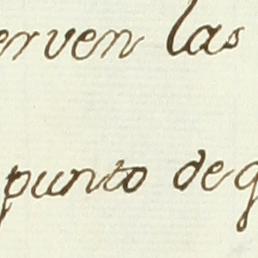 erven las
punto de q